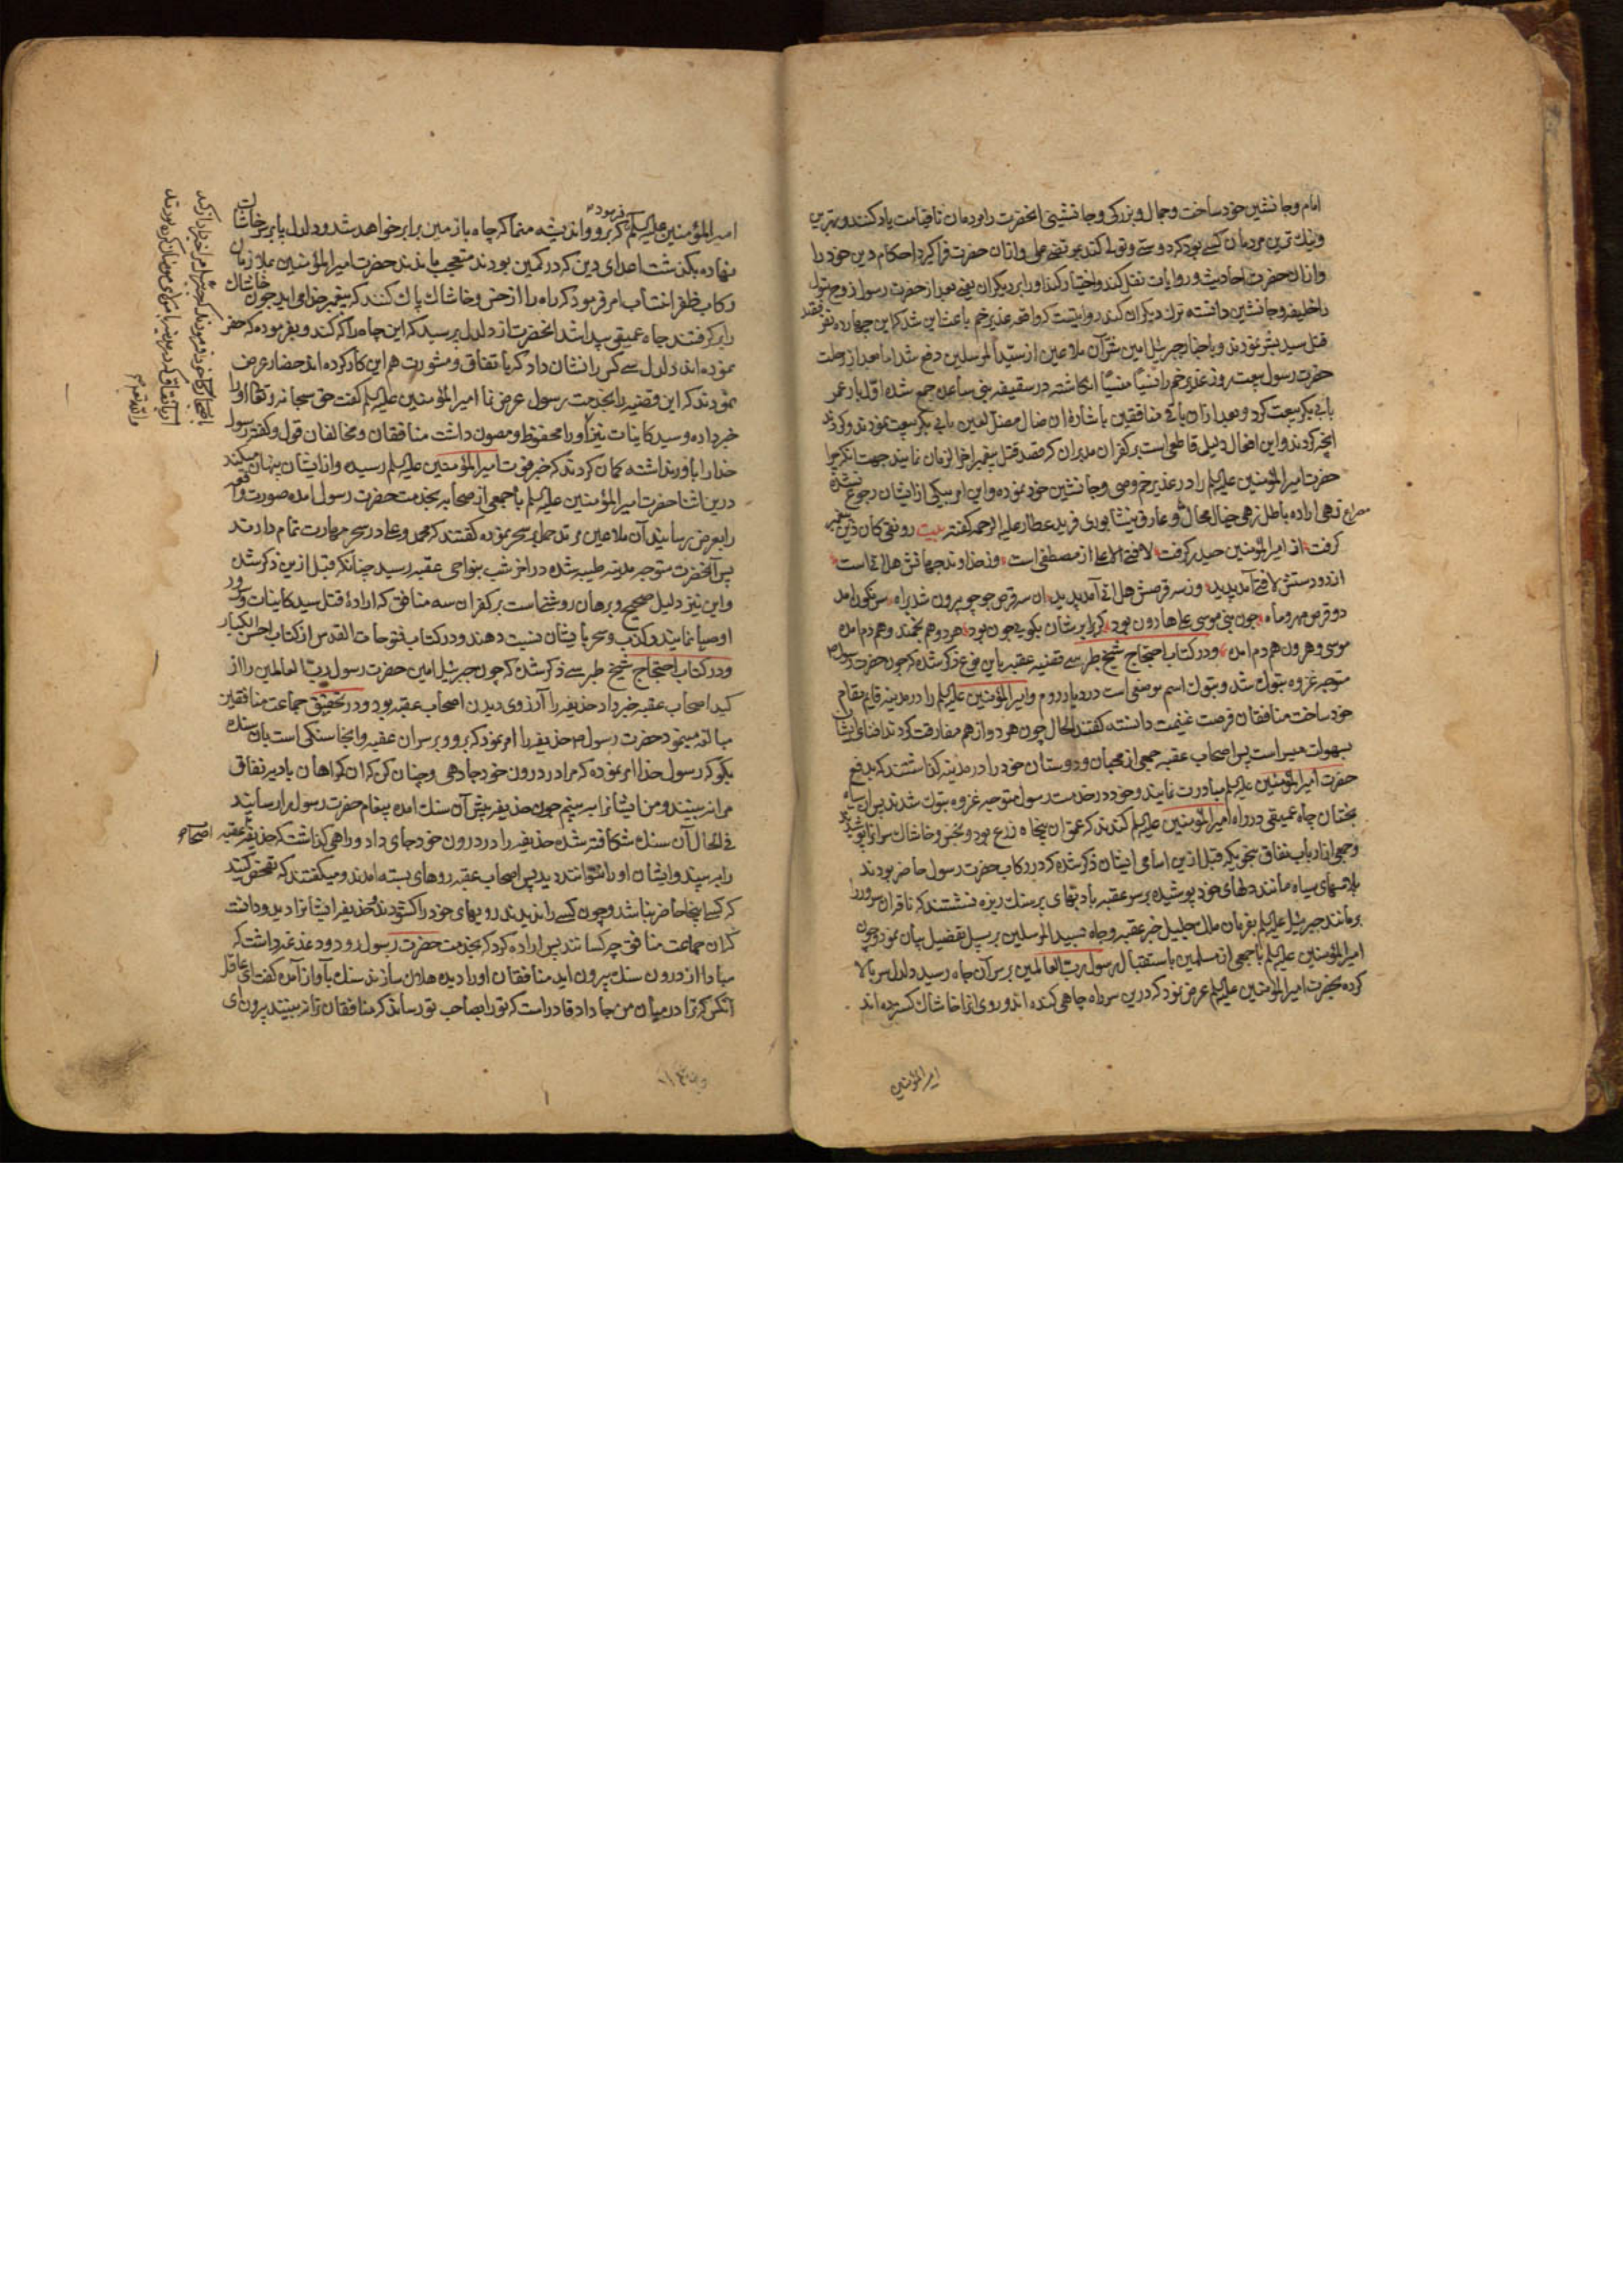 امام وجانشین خود ساخت وجمال وبزرکی وجانشینی انحضرت را مردمان تا قیامت یاد کنند وبهترین
ونیك ترین مردمان کسی بود که دوستی وتولی کند بمرتضی علی وازان حضرت فرا کیرد احکام دین خود را
وازان حضرت احادیث وروایات نقل کند واختیار کند او را بر دیکران یعنی بعد از حضرت رسول زوج بتول
را خلیفه وجانشین دانسته ترك دیکران کند روایتست که واقعه غدیر خم باعث این شد که این چهارده نفر قصد
قتل سید بشر نمودند وباخبار جبرئیل امین شر آن ملاعین از سید المرسلین دفع شد اما بعد از رحلت
حضرت رسول بیعت روز غدیر خم را نسیا منسیا انکاشته در سقیفه بنی ساعده جمع شده اول بار عمر
بابی بکر بیعت کرد وبعد ازان باقی منافقین باشاره ان ضال مضل لعین بابی بکر بیعت نمودند وکردند
انچه کردند واین افعال دلیل قاطعی است بر کفر ان مدبران که قصد قتل پیغمبر اخر الزمان نمایند جهت انکه چرا
حضرت امیر المؤمنین علیه السلم را در غدیر خم وصی وجانشین خود نموده واین امر بیکی از ایشان رجوع نشده
مصراع زهی اراده باطل زهی خیال محال وعارف نیشابوری فرید عطار علیه الرحمه کفته بیت رونقی کان دین پیغمبر
کرفت از امیر المؤمنین حیدر کرفت لا فتی الا علی از مصطفی است وز خداوند جهانش هل اتی است
از دو دستش لا فتی آمد پدید وز سه قرصش هل اتی آمد پدید ان سه قرص چو چو بیرون شد براه سرنکون امد
دو قرص مهر وماه چون نبی موسی علی هارون بود کر برابرشان بکویی چون بود هر دو هم تخمند وهم دم امده
موسی وهرون هم دم امده ودر کتاب احتجاج شیخ طبرسی قضیه عقبه باین نوع ذکر شده که چون حضرت رسول
متوجه غزوه تبوك شد وتبوك اسم موضعی است در دیار روم وامیر المؤمنین علیه السلم را در مدینه قایم مقام
خود ساخت منافقان فرصت غنیمت دانسته کفتند الحال چون هر دو از هم مفارقت کردند افنای ایشان
بسهولت میسر است پس اصحاب عقبه جمعی از محبان ودوستان خود را در مدینه کذاشتند که بدفع
حضرت امیر المؤمنین علیه السلم مبادرت نمایند وخود در خدمت رسول متوجه غزوه تبوك شدند پس ان سیاه
بختان چاه عمیقی در راه امیر المؤمنین علیه السلم کندند که عمق ان پنجاه زرع بود وبخس وخاشاك سر انرا پوشیدند
وجمعی از ارباب نفاق بنحویکه قبل ازین اسامی ایشان ذکر شده که در رکاب حضرت رسول حاضر بودند
بلاسهای سیاه مانند دلهای خود پوشیده بر سر عقبه با دبهای پر سنك ریزه نشستند که ناقه ان سرور را
برمانند جبرئیل علیه السلم بفرمان ملك جلیل خبر عقبه وچاه بسید المرسلین بر سبیل تفصیل بیان نمود وچون
امیر المؤمنین علیه السلم با جمعی از مسلمین باستقبال رسول رب العالمین بر سر آن چاه رسید دلدل سر بالا
کرده بحضرت امیر المؤمنین علیه السلم عرض نمود که درین سر راه چاهی کنده اند وروی انرا خاشاك کسترده اند
امیر المؤمنین
امیر المؤمنین علیه السلم فرمود که برو واندیشه منما که چاه با زمین برابر خواهد شد ودلدل پا بر سر خاشاك
نهاده بکذشت اعدای دین که در کمین بودند متعجب ماندند حضرت امیر المؤمنین ملازمان
رکاب ظفر انتساب امر فرمود که راه را از خس وخاشاك پاك کنند که پیغمبر خدا می اید چون خاشاك
را برکرفتند چاه عمیقی پیدا شد انحضرت از دلدل پرسید که این چاه را که کند وبفرموده که حفر
نموده اند دلدل سی کس را نشان داد که باتفاق ومشورت هم این کار کرده اند حضار عرض
نمودند که این قضیه را بخدمت رسول عرض نما امیر المؤمنین علیه السلم کفت حق سبحانه وتعالی او را
خبر داده وسید کاینات نیز او را محفوظ ومصون داشت منافقان ومخالفان قول وکفته رسول
خدا را باور نداشته کمان کردند که خبر فوت امیر المؤمنین علیه السلم رسیده واز ایشان پنهان میکند
درین اثنا حضرت امیر المؤمنین علیه السلم با جمعی از صحابه بخدمت حضرت رسول امده صورت واقعه
را بعرض رسانید آن ملاعین مرتد حمل بسحر نموده کفتند که محمد وعلی در سحر مهارت تمام دارند
پس آنحضرت متوجه مدینه طیبه شده در اخر شب بنواحی عقبه رسید چنانکه قبل ازین ذکر شد
واین نیز دلیل صحیح وبرهان روشنی است بر کفر ان سه منافق که اراده قتل سید کاینات وسرور
اوصیا نمایند وکذب وسحر بایشان نسبت دهند ودر کتاب فتوحات القدس از کتاب احسن الکبار
ودر کتاب احتجاج شیخ طبرسی ذکر شده که چون جبرئیل امین حضرت رسول رب العالمین را از
کید اصحاب عقبه خبر داد حذیفه را آرزوی دیدن اصحاب عقبه بود ودر تحقیق جماعت منافقین
مبالغه مینمود حضرت رسول م حذیفه را امر نمود که برو وبر سر ان عقبه وانجا سنکی است بان سنك
بکو که رسول خدا امر نموده که مرا در درون خود جا دهی وچنان کن که ان کمراهان بادیه نفاق
مرا نبینند ومن ایشانرا ببینم چون حذیفه پیش آن سنك امده پیغام حضرت رسول برا رسانید
فی الحال آن سنك شکافته شده حذیفه را در درون خود جای داد وراهی کذاشت که حذیفه اصحاب عقبه
را ببیند وایشان او را نتوانند دید پس اصحاب عقبه روهای بسته امدند ومیکفتند که تفحص کنید
که کسی اینجا حاضر نباشد وچون کسی را ندیدند رویهای خود را کشودند حذیفه ایشانرا دید ودانست
که ان جماعت منافق چه کسانند پس اراده کرد که بخدمت حضرت رسول رود ودغدغه داشت که
مبادا از درون سنك بیرون اید منافقان او را دیده هلاك سازند سنك بآواز آمده کفت ای عاقل
انکس که ترا در میان من جا داد قادر است که تو را بصاحب تو رساند که منافقان ترا نبینند بیرون ای